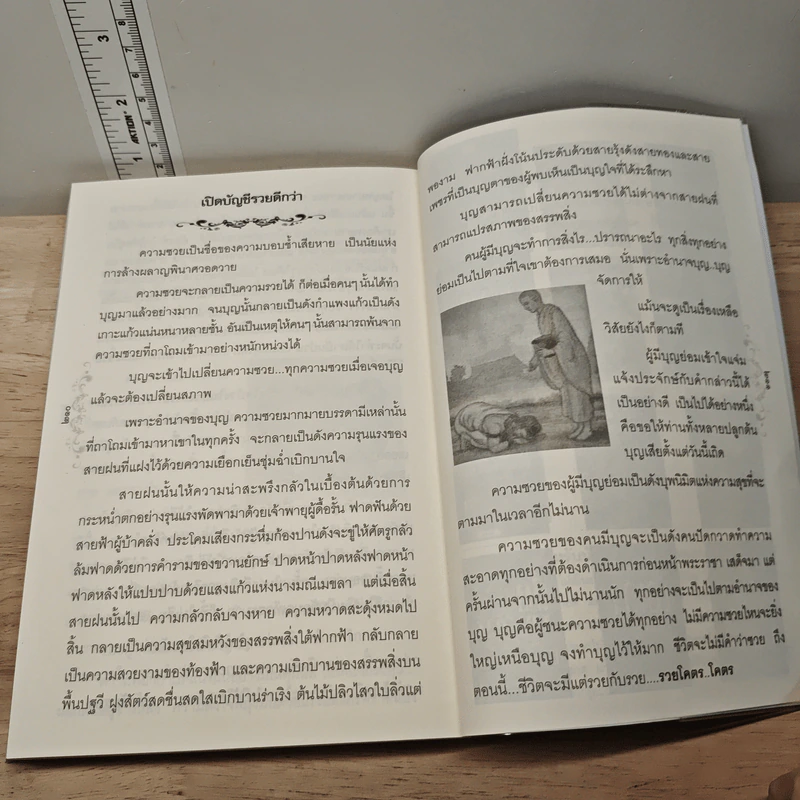 AKTION
เปิดบัญชีรวยดีกว่า
ความซวยเป็นชื่อของความบอบช้ำเสียหาย เป็นนัยแห่ง
การล้างผลาญพินาศวอดวาย
ความซวยจะกลายเป็นความรวยได้ ก็ต่อเมื่อคนๆ นั้นได้ทำ
บุญมาแล้วอย่างมาก จนบุญนั้นกลายเป็นดังกำแพงแก้วเป็นดัง
เกาะแก้วแน่นหนาหลายชั้น อันเป็นเหตุให้คนๆ นั้นสามารถพ้นจาก
ความซวยที่ถาโถมเข้ามาอย่างหนักหน่วงได้
บุญจะเข้าไปเปลี่ยนความซวย...ทุกความซวยเมื่อเจอบุญ
แล้วจะต้องเปลี่ยนสภาพ
เพราะอำนาจของบุญ ความซวยมากมายบรรดามีเหล่านั้น
ที่ถาโถมเข้ามาหาเขาในทุกครั้ง จะกลายเป็นดังความรุนแรงของ
สายฝนที่แฝงไว้ด้วยความเยือกเย็นชุ่มฉ่ำเบิกบานใจ
สายฝนนั้นให้ความน่าสะพรึงกลัวในเบื้องต้นด้วยการ
กระหน่ำตกอย่างรุนแรงพัดพามาด้วยเจ้าพายุผู้ดื้อรั้น ฟาดฟันด้วย
สายฟ้าผู้บ้าคลั่ง ประโคมเสียงกระหึ่มก้องปานดังจะขู่ให้ศัตรูกลัว
ล้มฟาดด้วยการคำรามของขวานยักษ์ ปาดหน้าปาดหลังฟาดหน้า
ฟาดหลังให้แปบปาบด้วยแสงแก้วแห่งนางมณีเมขลา แต่เมื่อสิ้น
สายฝนนั้นไป ความกลัวกลับจางหาย ความหวาดสะดุ้งหมดไป
สิ้น กลายเป็นความสุขสมหวังของสรรพสิ่งใต้ฟากฟ้า กลับกลาย
เป็นความสวยงามของท้องฟ้า และความเบิกบานของสรรพสิ่งบน
พื้นปฐวี ฝูงสัตว์สดชื่นสดใสเบิกบานร่าเริง ต้นไม้ปลิวไสวใบลิ่วแต่
๒๑๐
พองาม ฟากฟ้าฝั่งโน้นประดับด้วยสายรุ้งดังสายทองและสาย
เพชรที่เป็นบุญตาของผู้พบเห็นเป็นบุญใจที่ได้ระลึกหา
บุญสามารถเปลี่ยนความซวยได้ไม่ต่างจากสายฝนที่
สามารถแปรสภาพของสรรพสิ่ง
คนผู้มีบุญจะทำการสิ่งไร...ปรารถนาอะไร ทุกสิ่งทุกอย่าง
ย่อมเป็นไปตามที่ใจเขาต้องการเสมอ นั่นเพราะอำนาจบุญ..บุญ
จัดการให้
แม้นจะดูเป็นเรื่องเหลือ
วิสัยยังไงก็ตามที
ผู้มีบุญย่อมเข้าใจแจ่ม
แจ้งประจักษ์กับคำกล่าวนี้ได้
เป็นอย่างดี เป็นไปได้อย่างหนึ่ง
คือขอให้ท่านทั้งหลายปลูกต้น
บุญเสียตั้งแต่วันนี้เถิด
ความซวยของผู้มีบุญย่อมเป็นดังบุพนิมิตแห่งความสุขที่จะ
ตามมาในเวลาอีกไม่นาน
ความซวยของคนมีบุญจะเป็นดังคนปัดกวาดทำความ
สะอาดทุกอย่างที่ต้องดำเนินการก่อนหน้าพระราชา เสด็จมา แต่
ครั้นผ่านจากนั้นไปไม่นานนัก ทุกอย่างจะเป็นไปตามอำนาจของ
บุญ บุญคือผู้ชนะความซวยได้ทุกอย่าง ไม่มีความซวยไหนจะยิ่ง
ใหญ่เหนือบุญ จงทำบุญไว้ให้มาก ชีวิตจะไม่มีคำว่าซวย ถึง
ตอนนี้...ชีวิตจะมีแต่รวยกับรวย....รวยโคตร..โคตร
๒๑๑